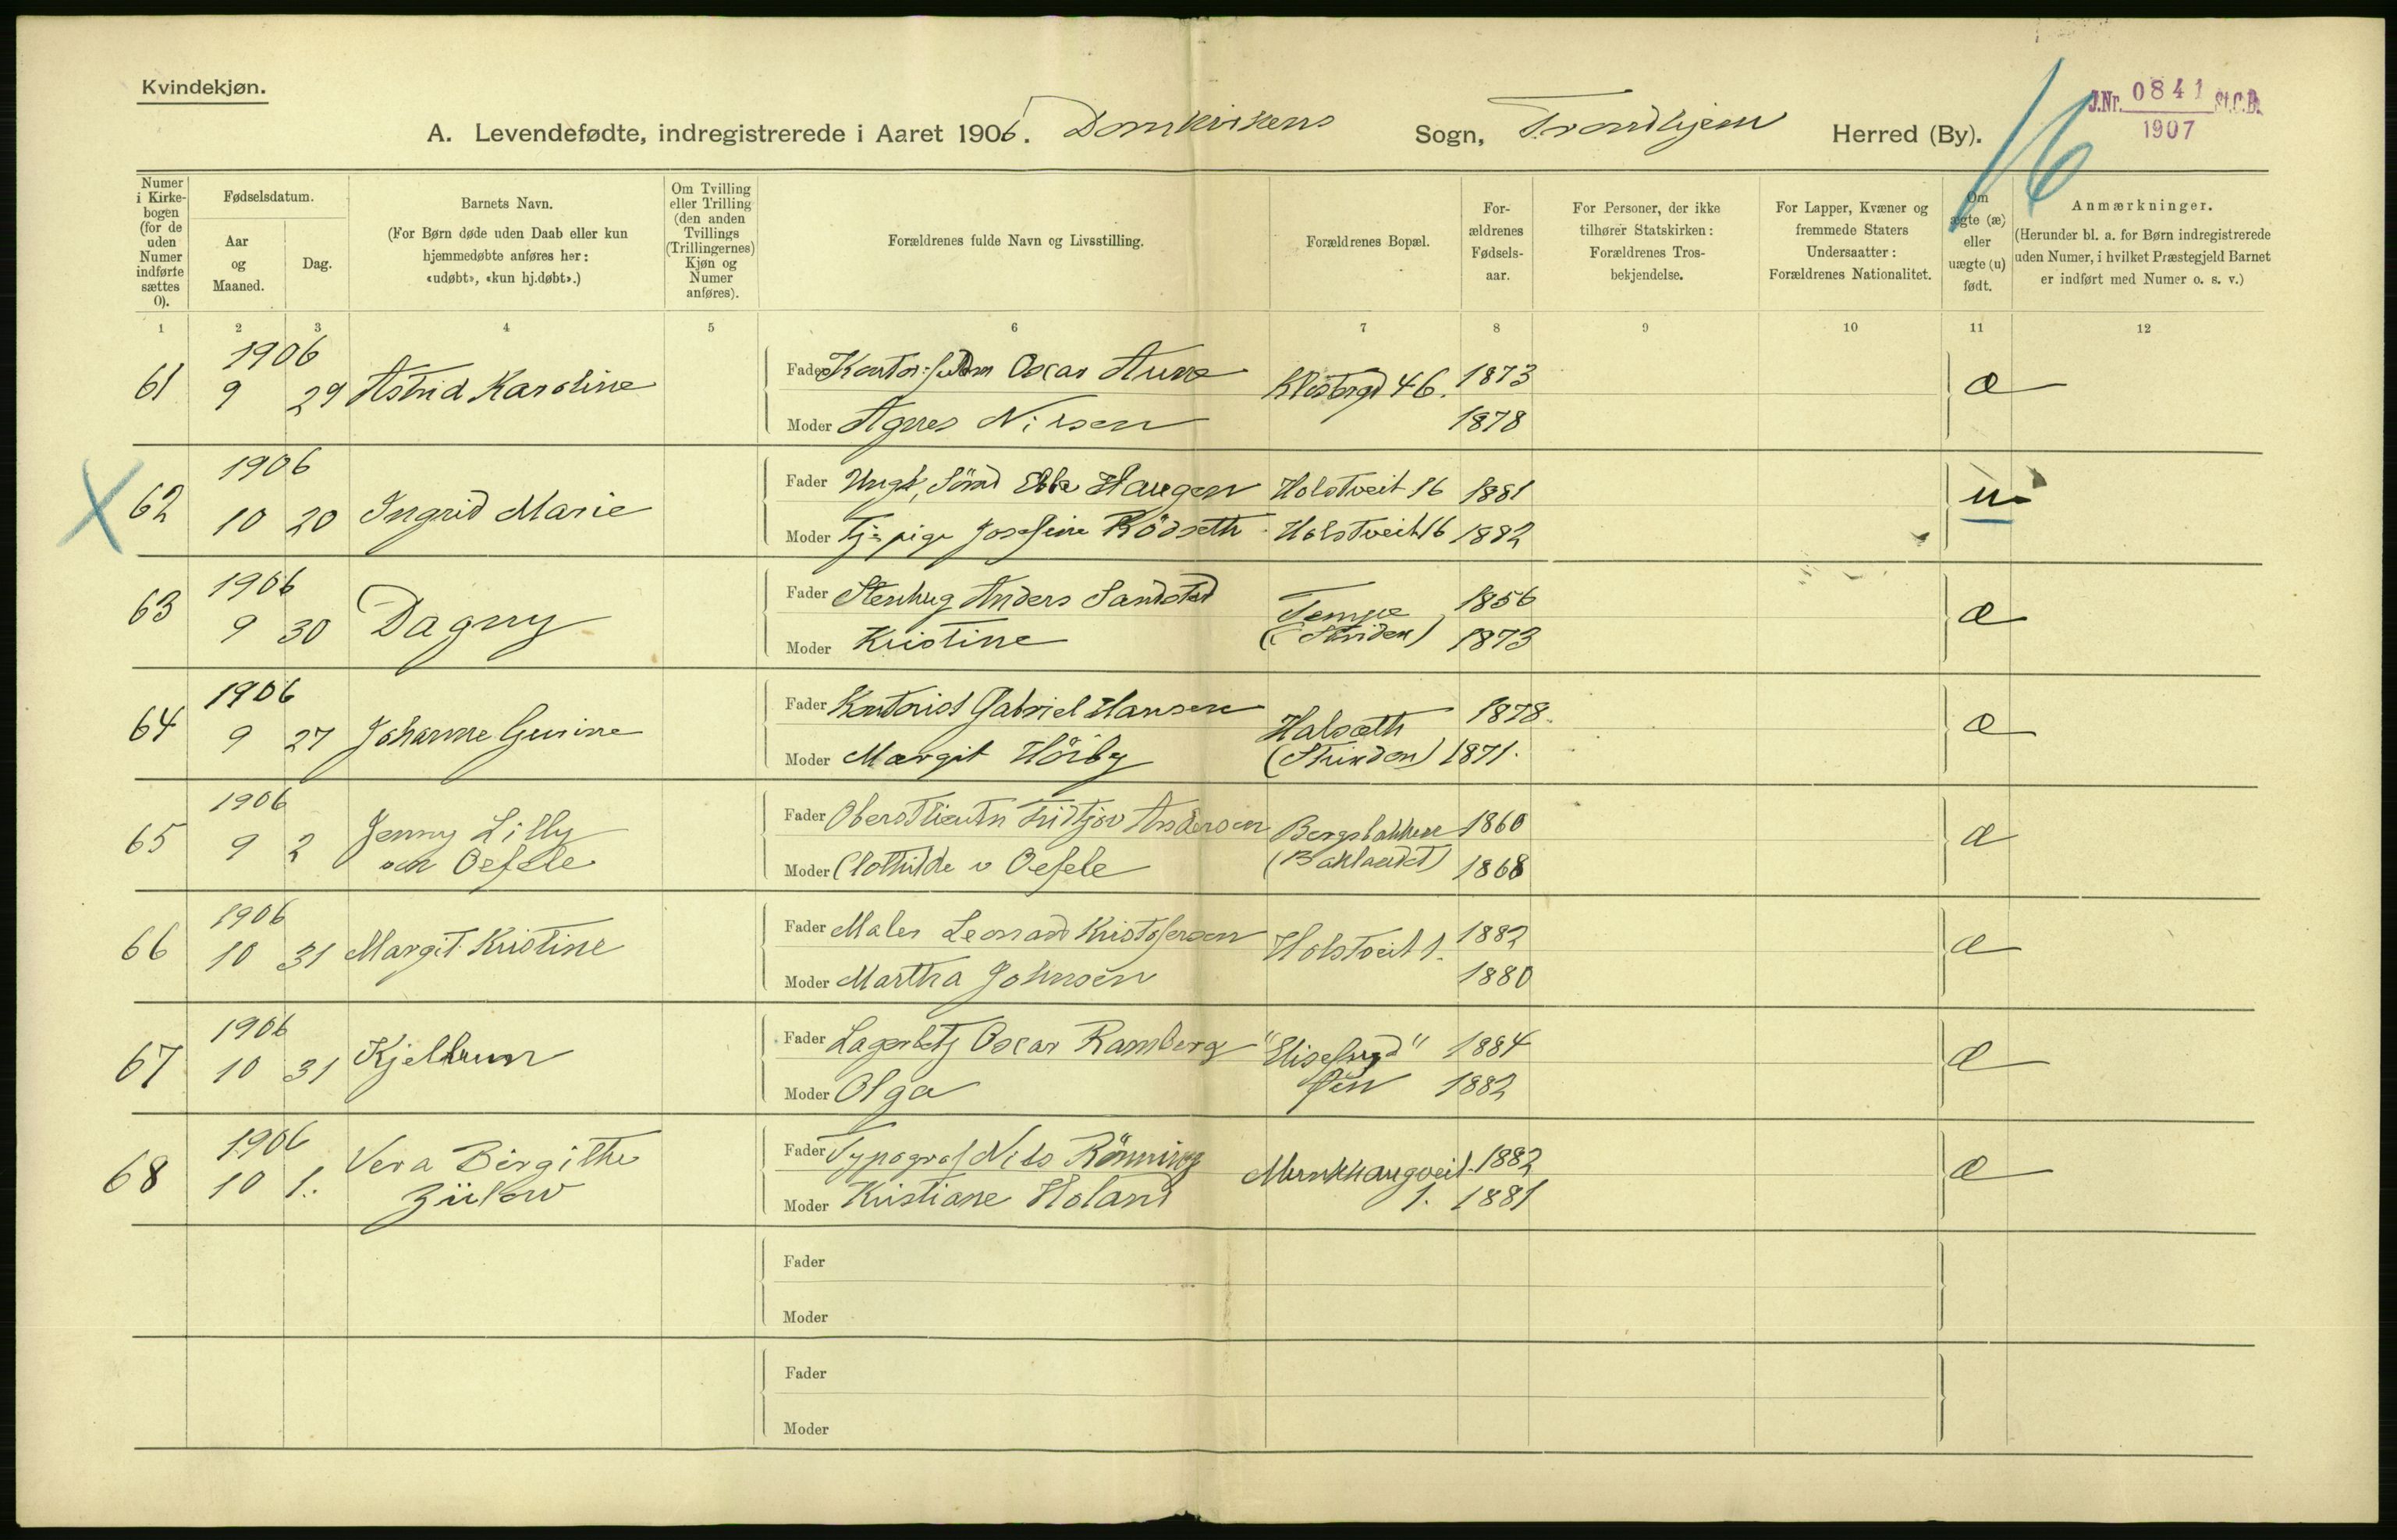 Kvindekjøn.
J.Nr. 0841 St.C.B.
1907
16
A. Levendefødte, indregistrerede i Aaret 1906. Domkirkens Sogn, Trondhjem Herred (By).
Numer i Kirkebogen (for de uden Numer indførte sættes 0).
Fødselsdatum.
Aar og Maaned.
Dag.
Barnets Navn.
(For Børn døde uden Daab eller kun hjemmedøbte anføres her: «udøbt», «kun hj.døbt».)
Om Tvilling eller Trilling (den anden Tvillings (Trillingernes) Kjøn og Numer anføres).
Forældrenes fulde Navn og Livsstilling.
Forældrenes Bopæl.
Forældrenes Fødselsaar.
For Personer, der ikke tilhører Statskirken: Forældrenes Trosbekjendelse.
For Lapper, Kvæner og fremmede Staters Undersaatter: Forældrenes Nationalitet.
Om ægte (æ) eller uægte (u) født.
Anmærkninger.
(Herunder bl. a. for Børn indregistrerede uden Numer, i hvilket Præstegjeld Barnet er indført med Numer o. s. v.)
1 2 3 4 5 6 7 8 9 10 11 12
1906
61 9 29 Astrid Karoline
Fader Oscar Aune 1873
46.
Moder Agnes Nilsen 1878
æ
X
1906
62 10 20 Ingrid Marie
Fader Ungk. Haugen Holstveit 16 1881
Moder Tj.pige Josefine Rödseth Holstveit 16 1882
u
1906
63 9 30 Dagny
Fader Anders Sandstad 1856
Tempe
(Strinden)
Moder Kristine 1873
æ
1906
64 9 27 Johanne Gurine
Fader Kontorist Gabriel Hansen 1878.
Halsæth
(Strinden)
Moder Margit Hörby 1871.
æ
1906
65 9 2 Jenny Lilly
von Oefele
Fader Oberstlieutn Fridtjov Andersen 1860
Bergsbakken
(Baklandet)
Moder Clothilde v Oefele 1868
æ
1906
66 10 31 Margit Kristine
Fader Maler Leonard Kristofersen 1882
Holstveit 1.
Moder Martha Johnsen 1880
æ
1906
67 10 31 Kjellrun
Fader Lagerbetj Oscar Ramberg 1884
Øen
Moder Olga 1882
æ
1906
68 10 1. Vera Birgithe
Zülow
Fader Typograf Nils Rönning 1882
Munkhaugveit
1.
Moder Kristiane Holand 1881
æ
Fader
Moder
Fader
Moder